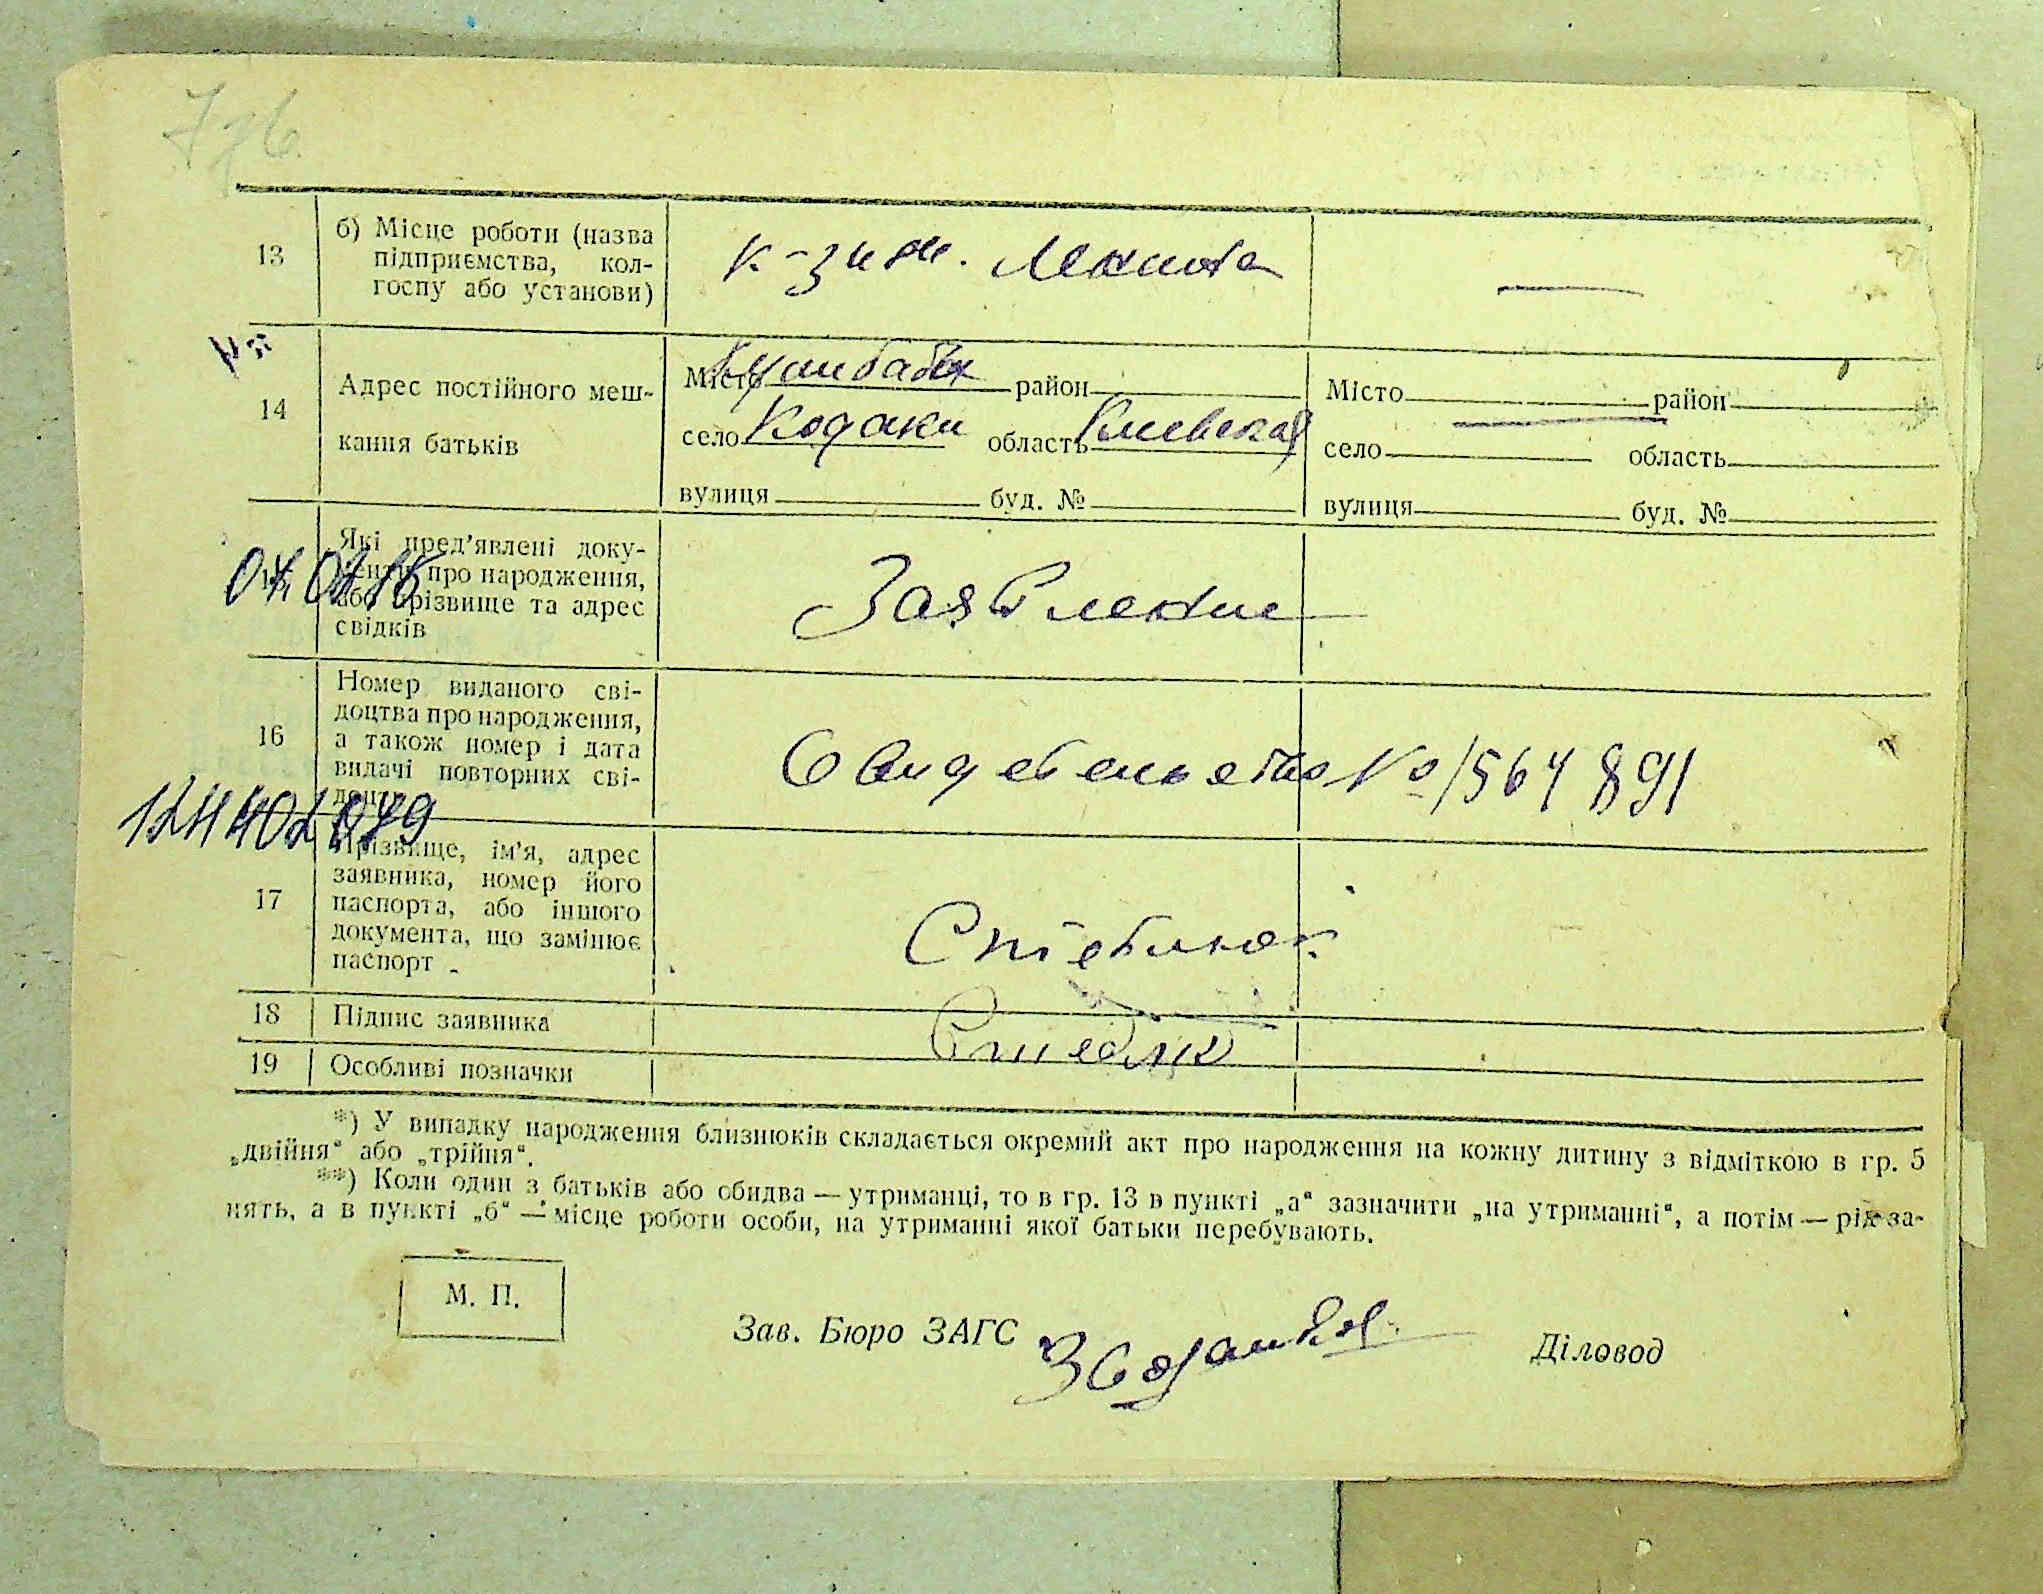 776
13
б) Місце роботи (назва
підприємства, кол-
госпу або установи)
к-з им. Ленина
14
Адрес постійного меш-
кання батьків
Місто район
село Кодаки область Киевская
вулиця буд. №
Місто район
село область
вулиця буд. №
Які пред'явлені доку-
про народження,
або прізвище та адрес
свідків
Заявление
16
Номер виданого сві-
доцтва про народження,
а також номер і дата
видачі повторних сві-
Свидетельство № 1564891
17
Прізвище, ім'я, адрес
заявника, номер його
паспорта, або іншого
документа, що замінює
паспорт
Стеблюк
18
Підпис заявника
19
Особливі позначки
*) У випадку народження близнюків складається окремий акт про народження на кожну дитину з відміткою в гр. 5
„двійня“ або „трійня“.
**) Коли один з батьків або обидва — утриманці, то в гр. 13 в пункті „а“ зазначити „на утриманні“, а потім — рід за-
нять, а в пункті „б“ — місце роботи особи, на утриманні якої батьки перебувають.
М. П.
Зав. Бюро ЗАГС
Діловод